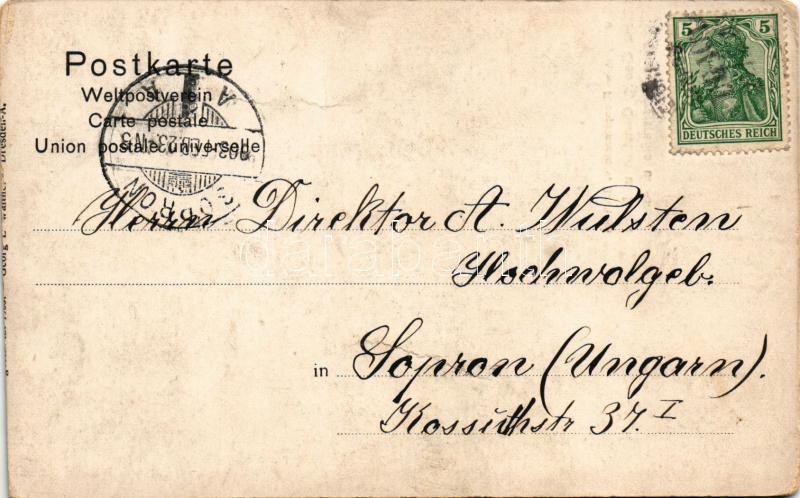 Postkarte
Weltpostverein
Carte postale
Union postale universelle
5 5
DEUTSCHES REICH
SOPRON
A A
Herrn Direktor A. Wulsten
Hochwolgeb.
in Sopron (Ungarn).
Kossuthstr 37. I
Dresden-A.
darabanth